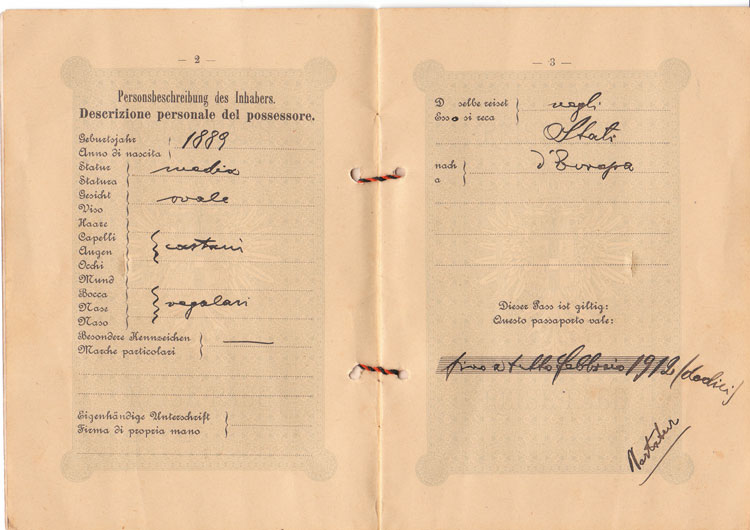 — 2 —
Personsbeschreibung des Inhabers.
Descrizione personale del possessore.
Geburtsjahr
Anno di nascita
1889
Statur
Statura
media
Gesicht
Viso
ovale
Haare
Capelli
Augen
Occhi
castani
Mund
Bocca
Nase
Naso
regolari
Besondere Kennzeichen
Marche particolari
Eigenhändige Unterschrift
Firma di propria mano
— 3 —
D selbe reiset
Esso si reca
negli
Stati
nach
a
d'Europa
Dieser Pass ist giltig:
Questo passaporto vale:
fino a tutto Febbraio 1912 (dodici)